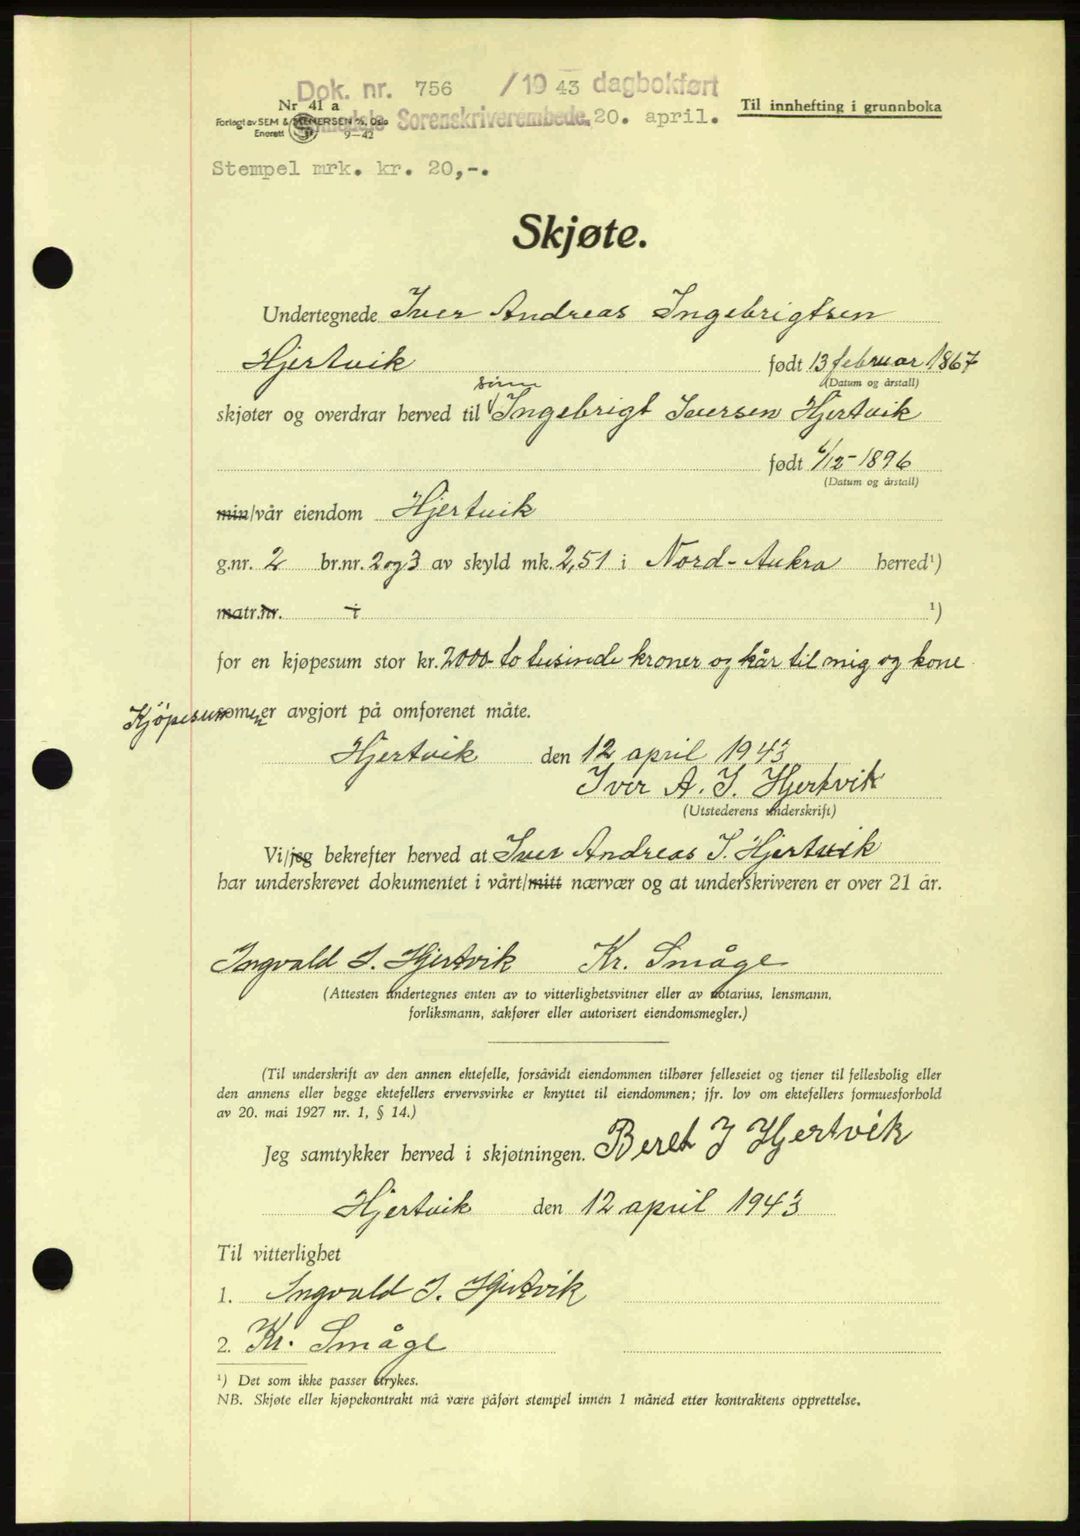 Dok. nr. 756 /1943 dagbokført
Nr 41 a
Til innhefting i grunnboka
Forlagt av SEM & STENERSEN A/S, Oslo
Sorenskriverembede. 20. april.
Enerett 9—42
Stempel mrk. kr. 20,-.
Skjøte.
Undertegnede Iver Andreas Ingebrigtsen
Hjertvik født 13 februar 1867
(Datum og årstall)
sønn
skjøter og overdrar herved til Ingebrigt Iversen Hjertvik
født 6/12-1896
(Datum og årstall)
min/vår eiendom Hjertvik
g.nr. 2 br.nr. 2 og 3 av skyld mk. 2,51 i Nord-Aukra herred¹)
matr.nr. i ¹)
for en kjøpesum stor kr. 2000 to tusinde kroner og kår til mig og kone
Kjøpesummen som er avgjort på omforenet måte.
Hjertvik den 12 april 1943
Iver A. I. Hjertvik
(Utstederens underskrift)
Vi/jeg bekrefter herved at Iver Andreas I. Hjertvik
har underskrevet dokumentet i vårt/mitt nærvær og at underskriveren er over 21 år.
Ingvald I. Hjertvik Kr. Småge
(Attesten undertegnes enten av to vitterlighetsvitner eller av notarius, lensmann,
forliksmann, sakfører eller autorisert eiendomsmegler.)
(Til underskrift av den annen ektefelle, forsåvidt eiendommen tilhører felleseiet og tjener til fellesbolig eller
den annens eller begge ektefellers ervervsvirke er knyttet til eiendommen; jfr. lov om ektefellers formuesforhold
av 20. mai 1927 nr. 1, § 14.)
Jeg samtykker herved i skjøtningen. Beret I Hjertvik
Hjertvik den 12 april 1943
Til vitterlighet
1. Ingvald I. Hjertvik
2. Kr. Småge
¹) Det som ikke passer strykes.
NB. Skjøte eller kjøpekontrakt må være påført stempel innen 1 måned etter kontraktens opprettelse.